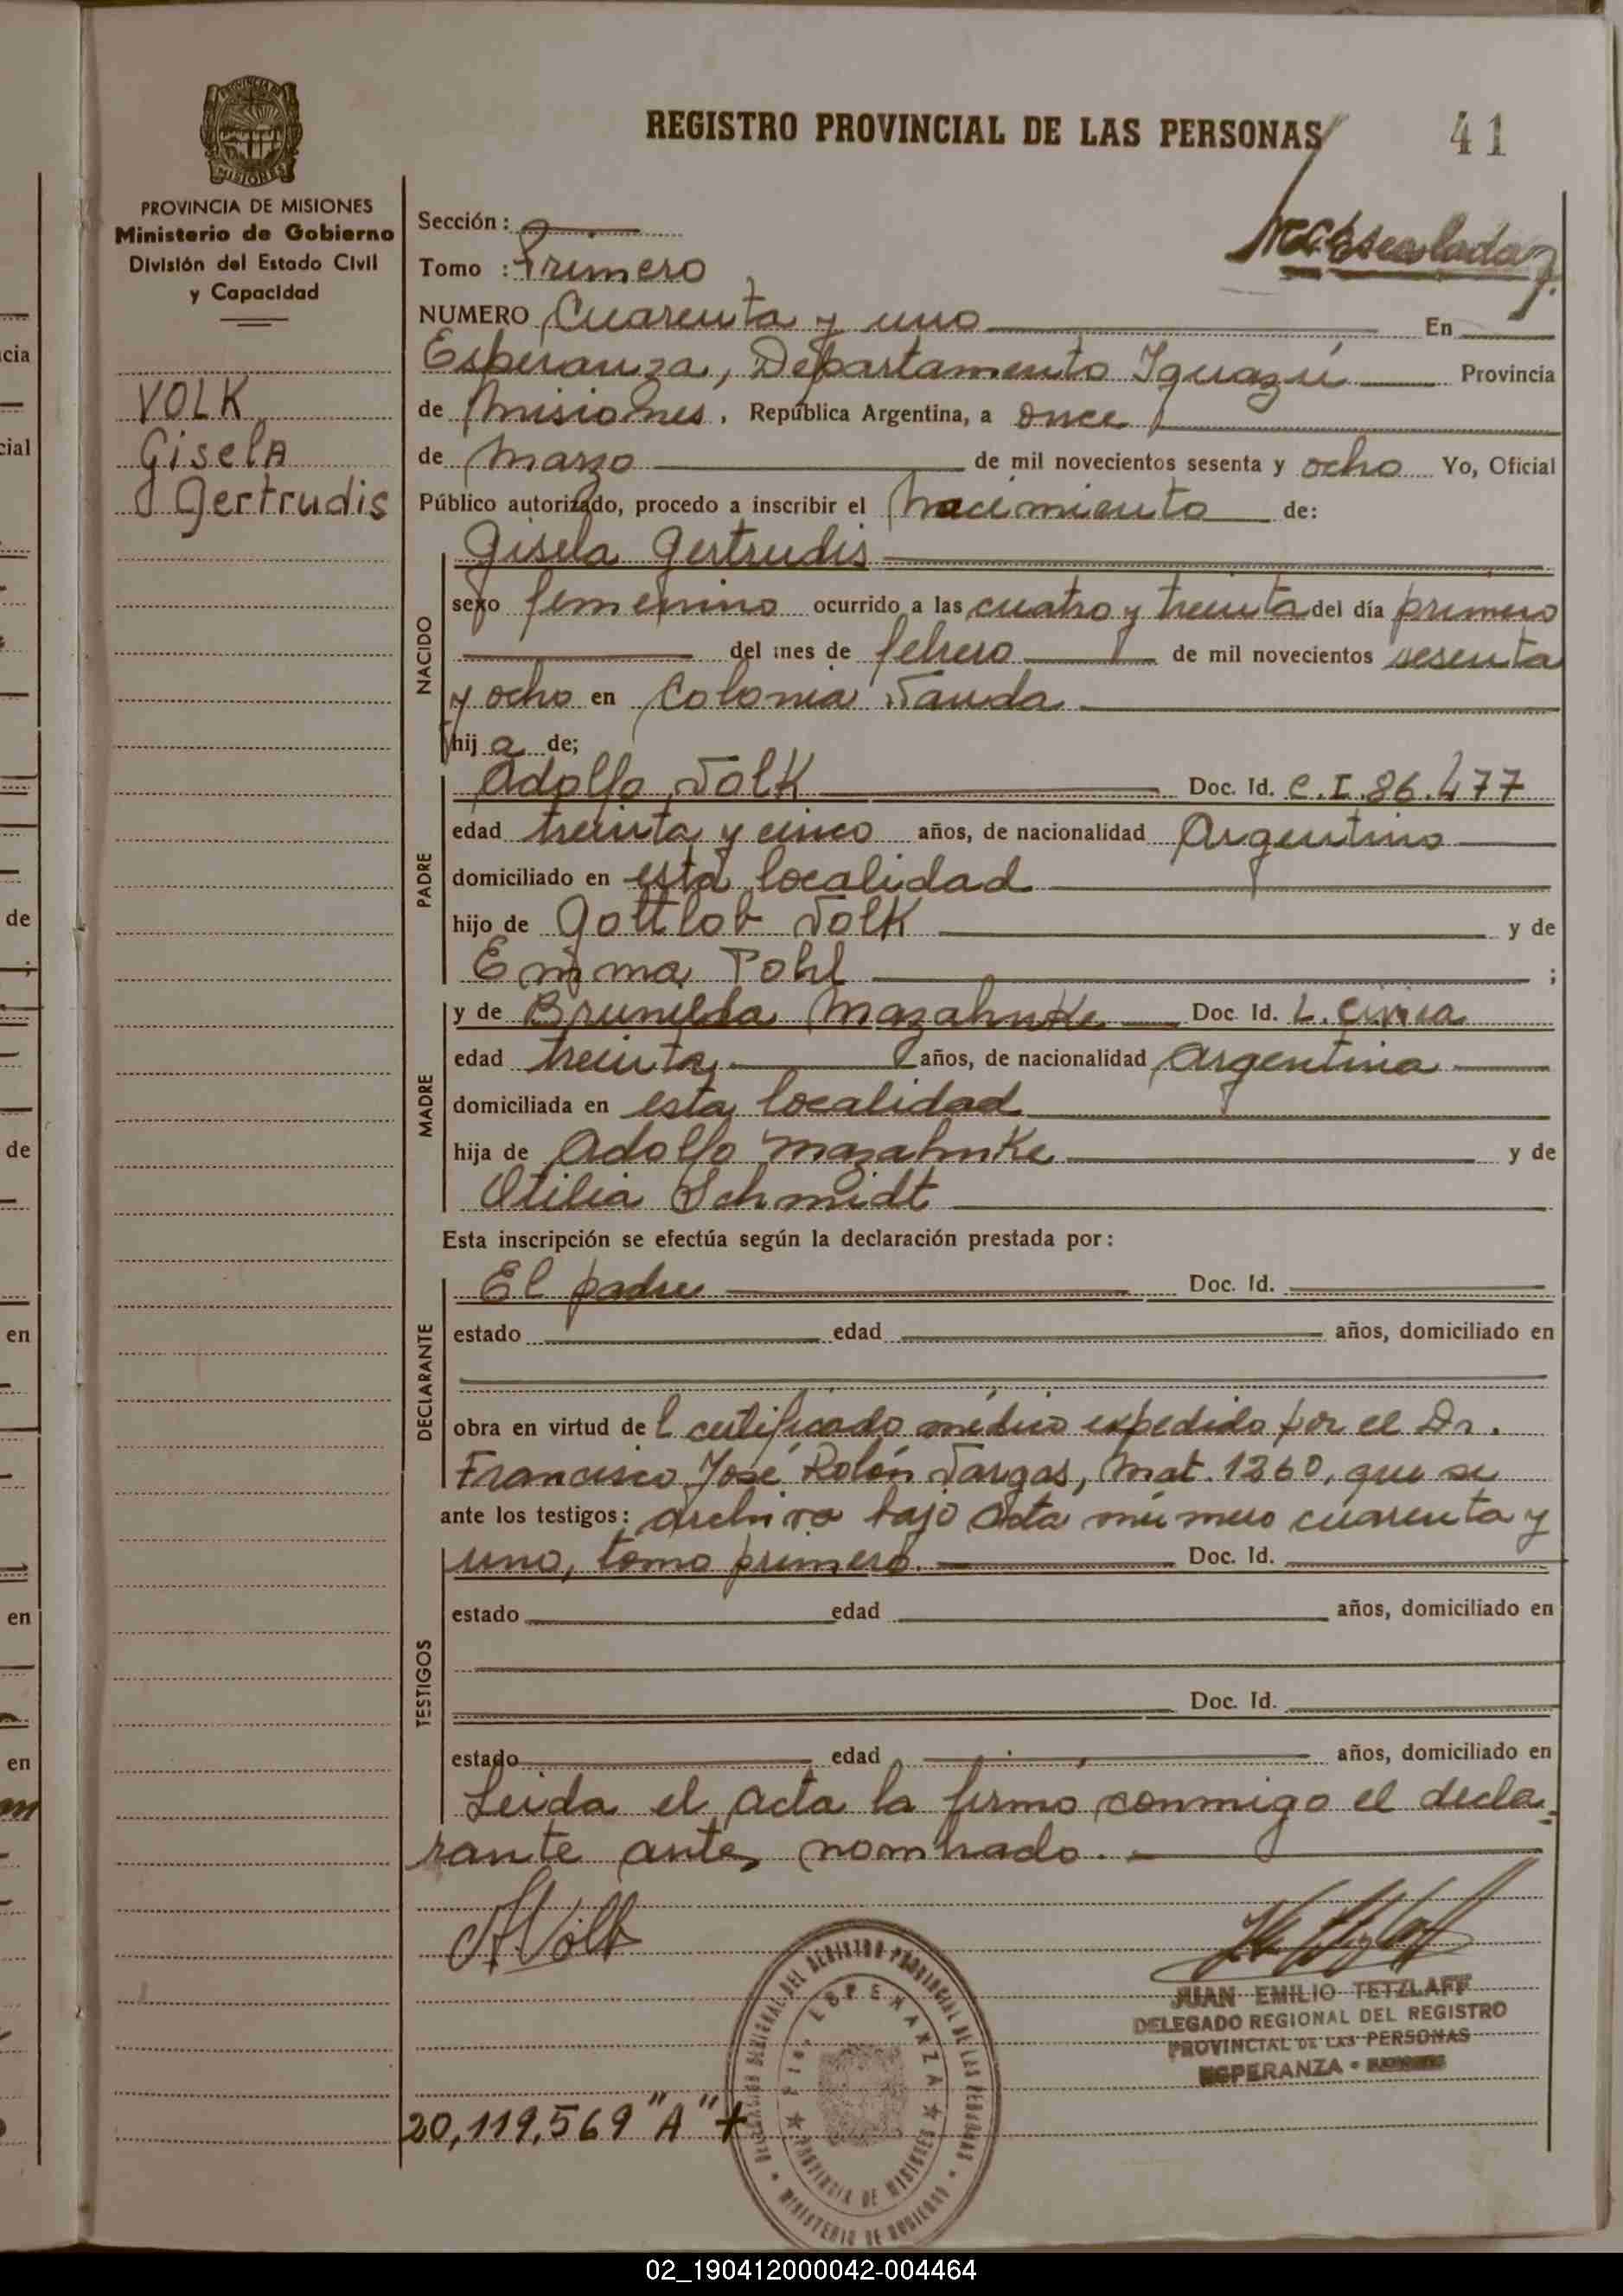 REGISTRO PROVINCIAL DE LAS PERSONAS
41
PROVINCIA DE MISIONES
Ministerio de Gobierno
División del Estado Civil
y Capacidad
VOLK
Gisela
Gertrudis
Sección :
Tomo : Primero
NUMERO Cuarenta y uno En
Esperanza, Departamento Iguazú Provincia
de Misiones, República Argentina, a once
de Marzo de mil novecientos sesenta y ocho Yo, Oficial
Público autorizado, procedo a inscribir el Nacimiento de:
NACIDO
Gisela Gertrudis
sexo femenino ocurrido a las cuatro y treinta del día primero
del mes de febrero de mil novecientos sesenta
y ocho en Colonia Vanda
hij a de;
PADRE
Adolfo Volk Doc. Id. C.I. 86.477
edad treinta y cinco años, de nacionalidad Argentino
domiciliado en esta localidad
hijo de Gottlob Volk y de
Emma Pohl ;
MADRE
y de Brunilda Mazahnke Doc. Id. L. Cívica
edad treinta años, de nacionalidad Argentina
domiciliada en esta localidad
hija de Adolfo Mazahnke y de
Otilia Schmidt
Esta inscripción se efectúa según la declaración prestada por:
DECLARANTE
El padre Doc. Id.
estado edad años, domiciliado en
obra en virtud del certificado médico expedido por el Dr.
Francisco José Rolón Vargas, Mat. 1260, que se
ante los testigos: archiva bajo acta número cuarenta y
TESTIGOS
uno, tomo primero. Doc. Id.
estado edad años, domiciliado en
Doc. Id.
estado edad años, domiciliado en
Leida el acta la firmó conmigo el decla=
rante antes nombrado.
A Volk
JUAN EMILIO TETZLAFF
DELEGADO REGIONAL DEL REGISTRO
PROVINCIAL DE LAS PERSONAS
ESPERANZA
20,119,569 "A" +
ESPERANZA
PROVINCIA DE MISIONES
MINISTERIO DE GOBIERNO
02_190412000042-004464